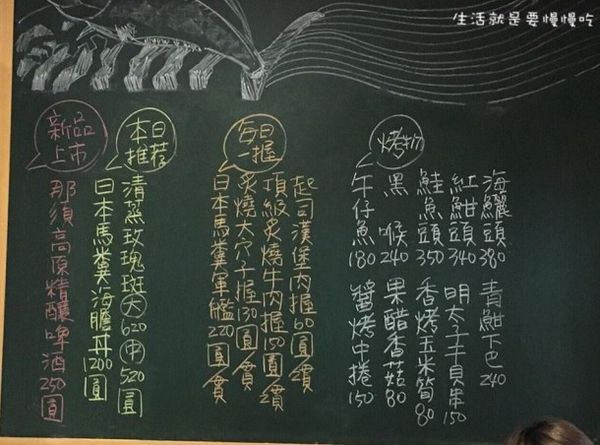 生活就是要慢慢吃
烤物
海鱺頭380
紅魽頭340
鮭魚頭350
黑喉240
午仔魚180
青魽下巴240
明太子干貝串150
香烤玉米筍80
果醋香菇80
醬烤中捲150
每日一握
起司漢堡肉握60圓/貫
頂級炙燒牛肉握150圓/貫
炙燒大穴子握130圓/貫
日本馬糞軍艦220圓/貫
本日推薦
清蒸玫瑰斑大620中520圓
日本馬糞海膽丼1200圓
新品上市
那須高原精釀啤酒250圓